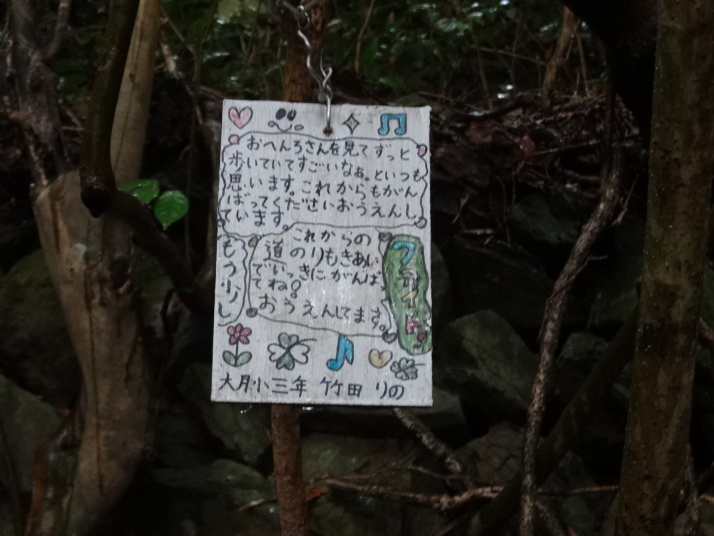 おへんろさんを見てずっと
歩いていてすごいなぁ。といつも
思います。これからもがん
ばってくださいおうえんし
ています。
もう少し
これからの
道のりもきあい
でいっきにがんば
てね!
おうえんしてます。
ファイト!
大月小三年 竹田 りの